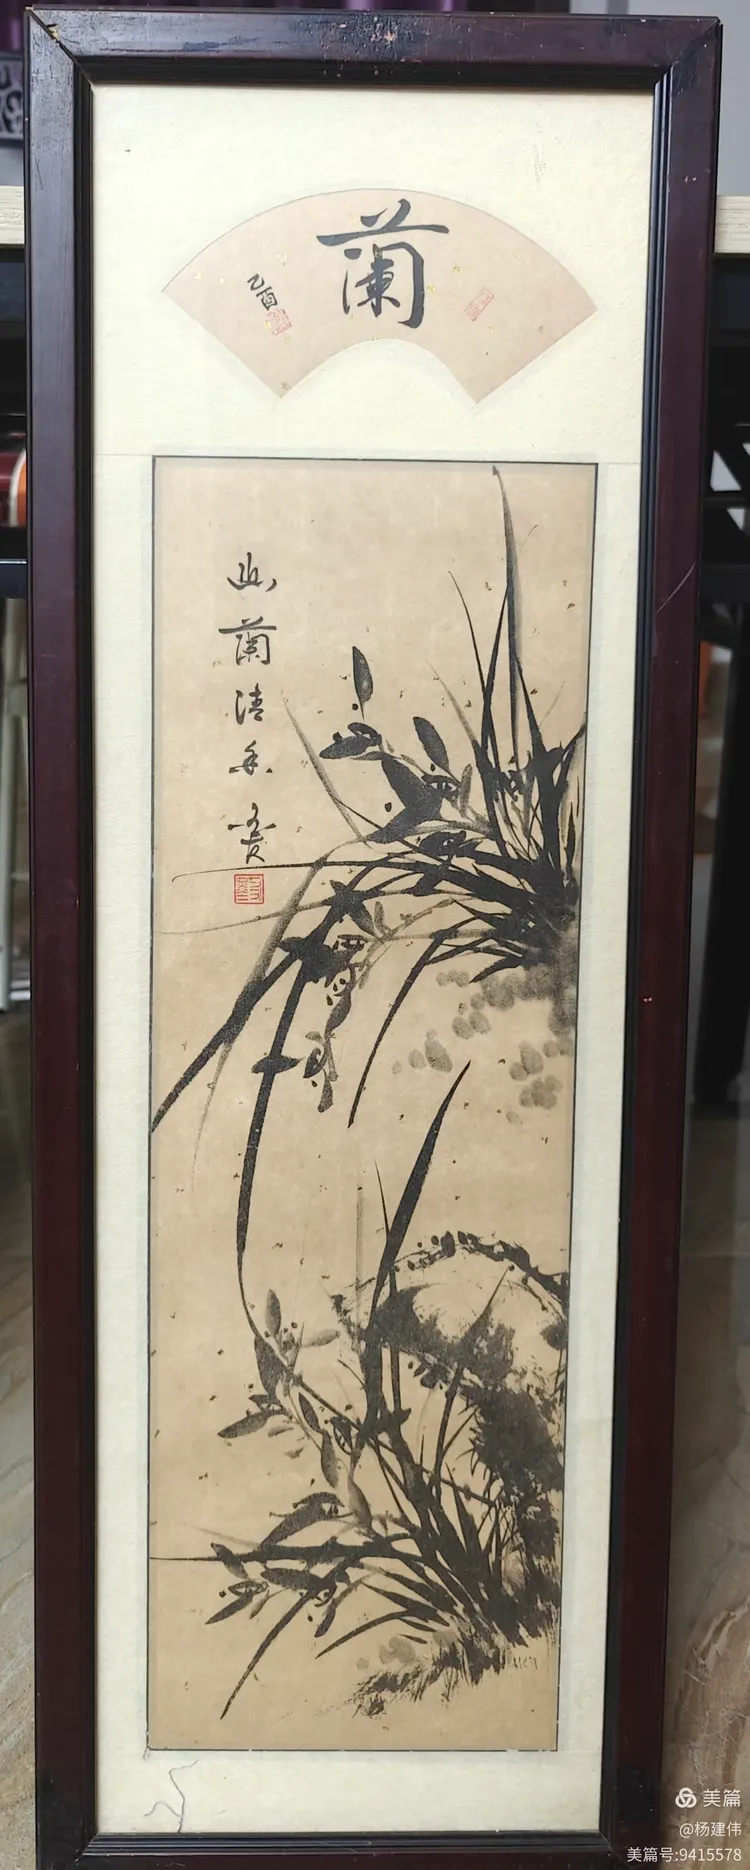 蘭
乙酉
幽蘭清香
美篇
@杨建伟
美篇号:9415578